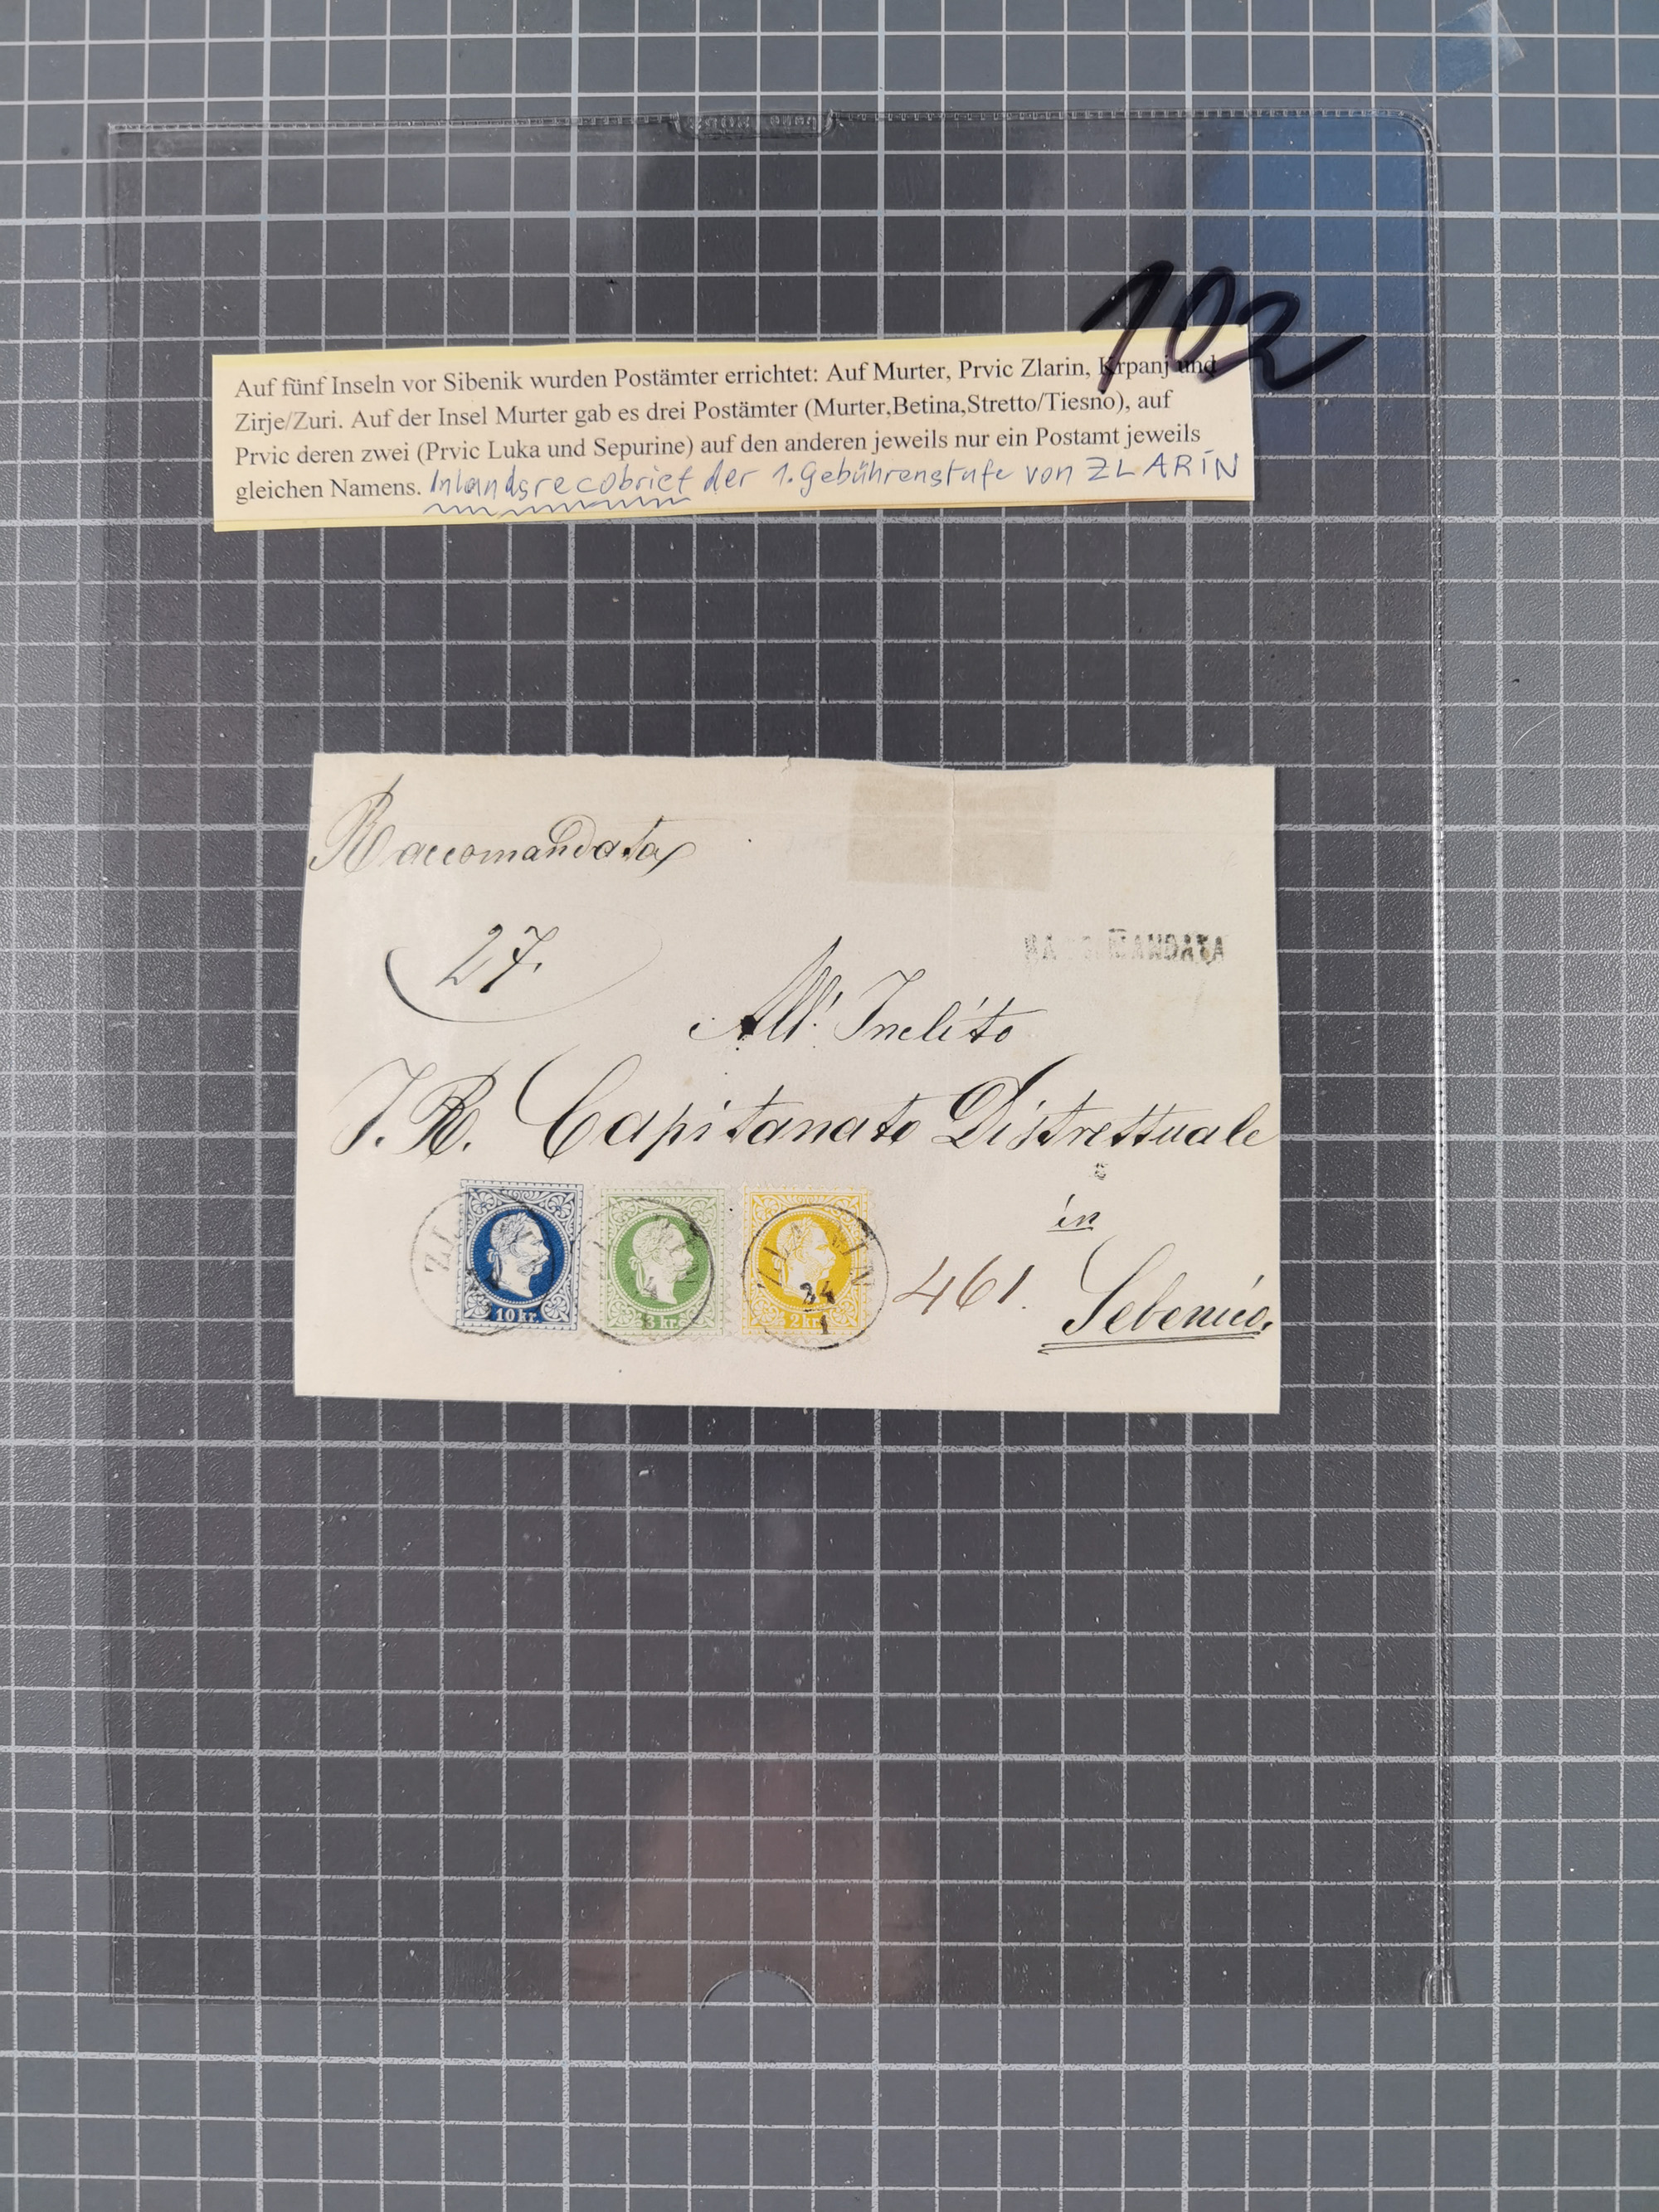 102
Auf fünf Inseln vor Sibenik wurden Postämter errichtet: Auf Murter, Prvic Zlarin, Krpanj und
Zirje/Zuri. Auf der Insel Murter gab es drei Postämter (Murter,Betina,Stretto/Tiesno), auf
Prvic deren zwei (Prvic Luka und Sepurine) auf den anderen jeweils nur ein Postamt jeweils
gleichen Namens. Inlandsrecobrief der 1. Gebührenstufe von ZLARIN
Raccomandata
27.
All' Inclito
I. R. Capitanato Distrettuale
in
461.
Sebenico.
10 kr.
3 kr.
2 kr.
ZLARIN
24
1